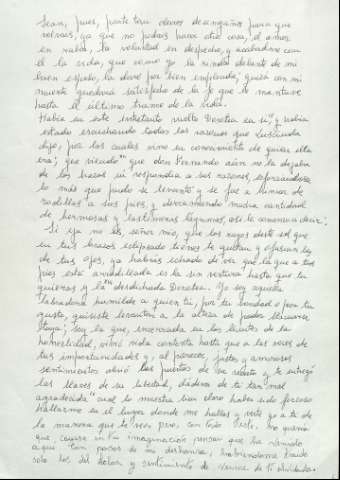 Sean, pues, parte tan claros desengaños para que
volvais, ya que no podais hacer otra cosa, el amor
en rabia, la voluntad en despecho, y acabadme con
él la vida; que como yo la rinda delante de mi
buen esposo, la daré por bien empleada; quizá con mi
muerte quedará satisfecho de la fe que le mantuve
hasta el último trance de la vida.
Había en este entretanto vuelto Dorotea en sí, y había
estado escuchando todas las razones que Luscinda
dijo, por las cuales vino en conocimiento de quien ella
era; que viendo que don Fernando aún no la dejaba
de los brazos ni respondía a sus razones, esforzándose
lo más que pudo se levantó y se fue a hincar de
rodillas a sus pies, y derramando mucha cantidad
de hermosas y lastimeras lágrimas, así le comenzó a decir:
Si ya no es, señor mío, que los rayos deste sol que
en tus brazos eclipsado tienes te quitan y ofuscan los
de tus ojos, ya habrás echado de ver que la que a tus
pies está arrodillada es la sin ventura hasta que tú
quieras y la desdichada Dorotea. Yo soy aquella
labradora humilde a quien tú, por tu bondad o por tu
gusto, quisiste levantar a la alteza de poder llamarse
tuya; soy la que, encerrada en los límites de la
honestidad, vivió vida contenta hasta que a las voces de
tus importunidades y, al parecer, justos y amorosos
sentimientos abrió las puertas de su recato y te entregó
las llaves de su libertad, dádiva de ti tan mal
agradecida cual lo muestra bien claro haber sido forzoso
hallarme en el lugar donde me hallas y verte yo a ti de
la manera que te veo. Pero, con todo esto, no querría
que cayese en tu imaginación pensar que he venido
aquí con pasos de mi deshonra, habiéndome traído
solo los del dolor y sentimiento de verme de ti olvidada.